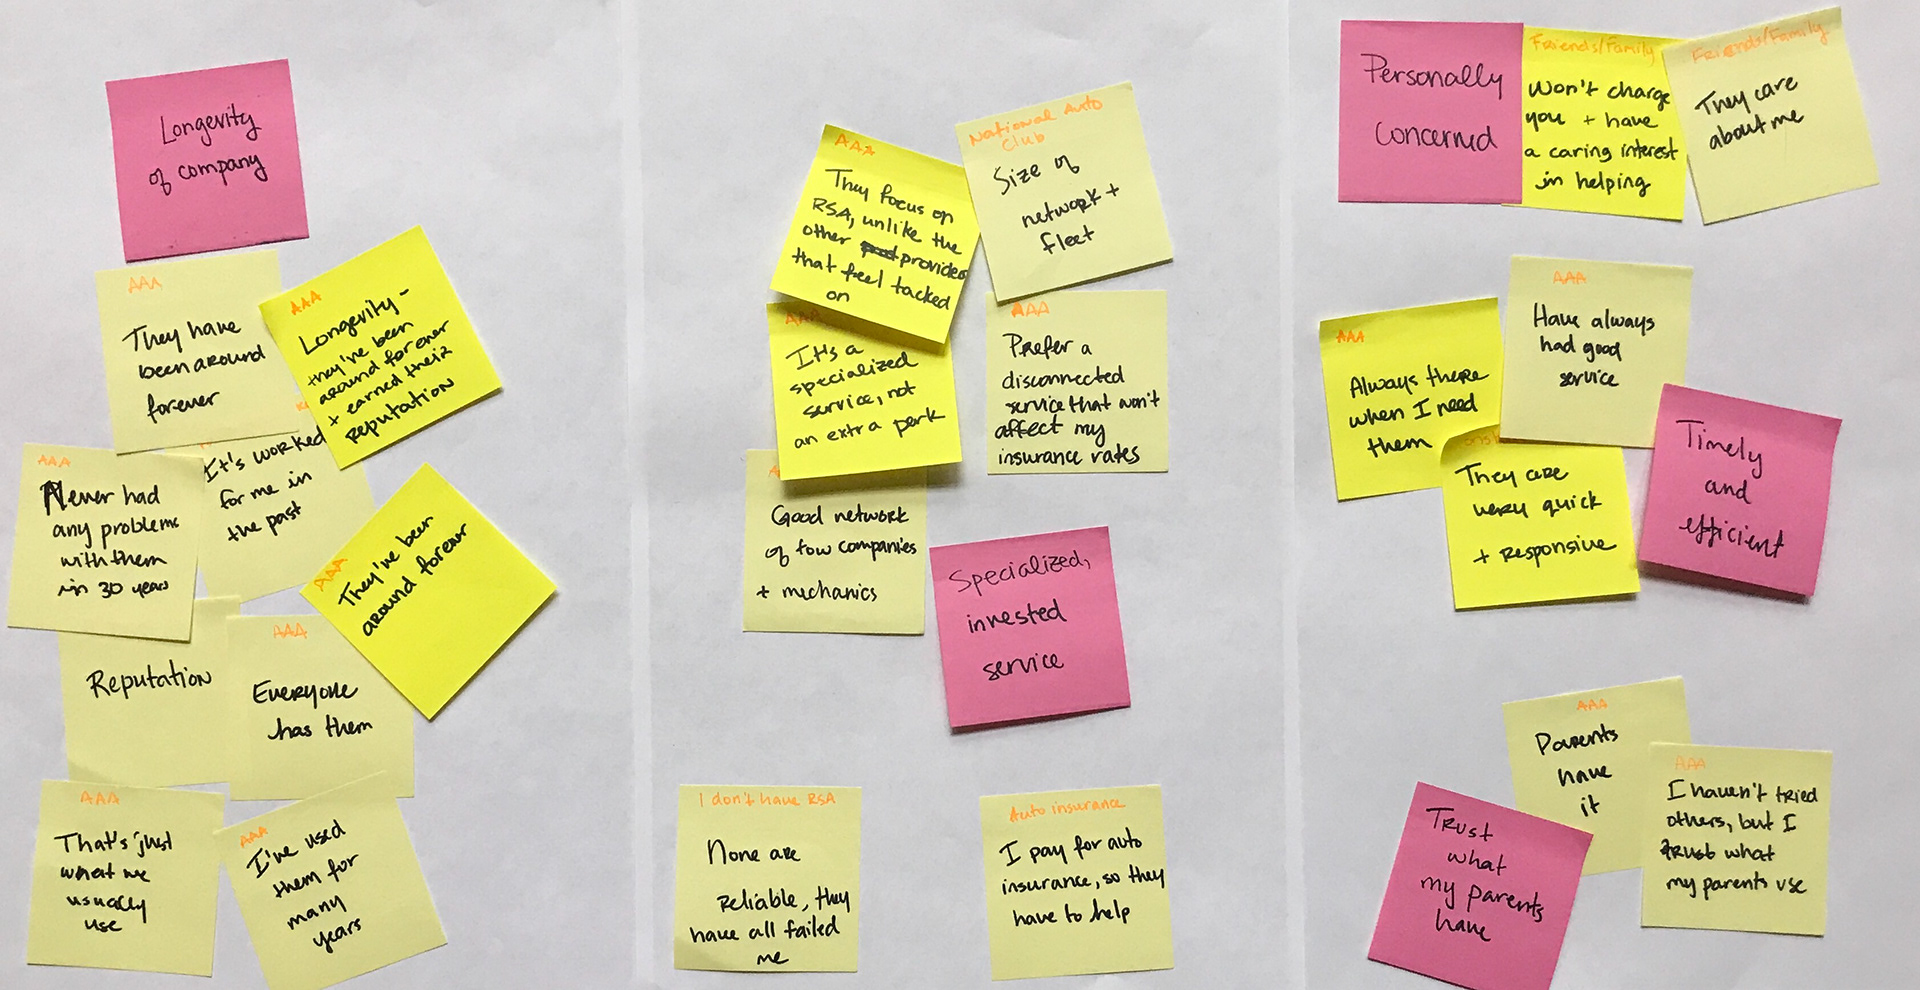 Longevity
of company
AAA
They have
been around
forever
AAA
Longevity -
they've been
around forever
+ earned their
reputation
AAA
Never had
any problems
with them
in 30 years
It's worked
for me in
the past
AAA
They've been
around forever
Reputation
AAA
Everyone
has them
AAA
That's just
what we
usually
use
AAA
I've used
them for
many
years
AAA
They focus on
RSA, unlike the
other providers
that feel tacked
on
National Auto
Club
Size of
network +
fleet
AAA
It's a
specialized
service, not
an extra perk
AAA
Prefer a
disconnected
service that won't
affect my
insurance rates
Good network
of tow companies
+ mechanics
Specialized,
invested
service
I don't have RSA
None are
reliable, they
have all failed
me
Auto insurance
I pay for auto
insurance, so they
have to help
Personally
concerned
Friends/Family
Won't charge
you + have
a caring interest
in helping
Friends/Family
They care
about me
AAA
Always there
when I need
them
AAA
Have always
had good
service
They are
very quick
+ responsive
Timely
and
efficient
AAA
Parents
have
it
AAA
I haven't tried
others, but I
trust what
my parents use
Trust
what
my parents
have